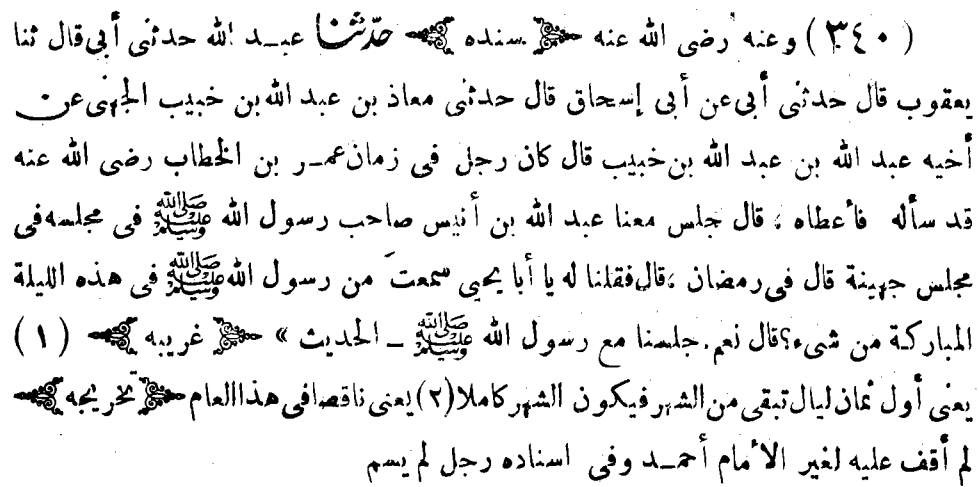 (٣٤٠) وعنه رضى الله عنه ﴿ سنده ﴾ حدّثنا عبد الله حدثنى أبى قال ثنا
يعقوب قال حدثنى أبى عن أبى إسحاق قال حدثنى معاذ بن عبد الله بن خبيب الجهنى عن
أخيه عبد الله بن عبد الله بن خبيب قال كان رجل فى زمان عمر بن الخطاب رضى الله عنه
قد سأله فأعطاه ، قال جلس معنا عبد الله بن أنيس صاحب رسول الله ﷺ فى مجلسه فى
مجلس جهينة قال فى رمضان ، قال فقلنا له يا أبا يحيى سمعتَ من رسول الله ﷺ فى هذه الليلة
المباركة من شىء؟ قال نعم . جلسنا مع رسول الله ﷺ ـ الحديث » ﴿ غريبه ﴾ (١)
يعنى أول ثمان ليال تبقى من الشهر فيكون الشهر كاملا (٢) يعنى ناقصا فى هذا العام ﴿ تخريجه ﴾
لم أقف عليه لغير الأمام أحمد وفى اسناده رجل لم يسم